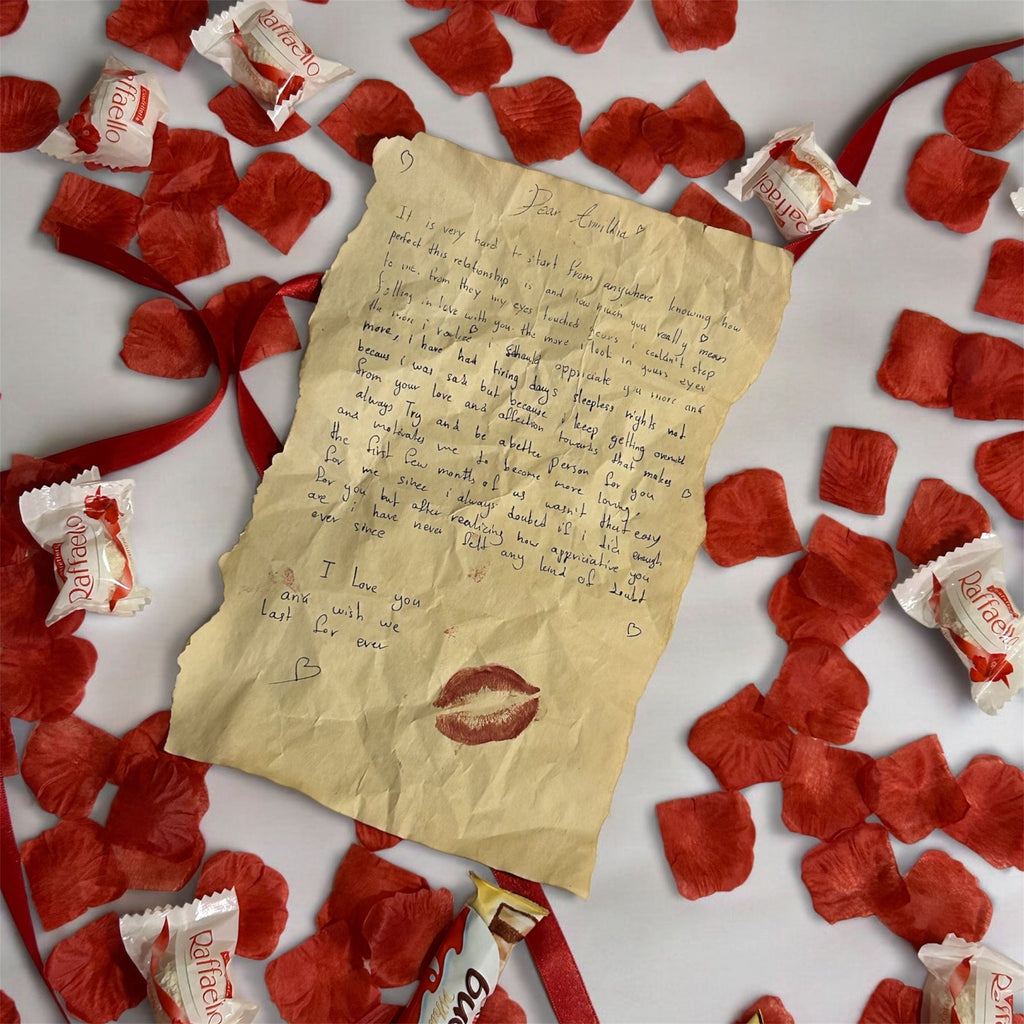 Dear
It is very hard to start from anywhere knowing how
perfect this relationship is and how much you really mean
to me. from they my eyes touched yours i couldn't stop
falling in love with you. the more i look in yours eyes
the more i realise should appriciate you more and
more, i have had tiring days sleepless nights not
becaus i was sad but because i keep getting
from your love and affection towards that makes
always Try and be abetter person for you
and motivates me to become more loving,
the first few months of us wasn't that easy
for me since i always doubted if i did enough
for you but after realizing how appriciative you
are i have never felt any kind of doubt
ever since
I Love you
and wish we
Last for ever
Raffaello
Raffaello
Raffaello
Raffaello
Raffaello
Raffaello
Raffaello